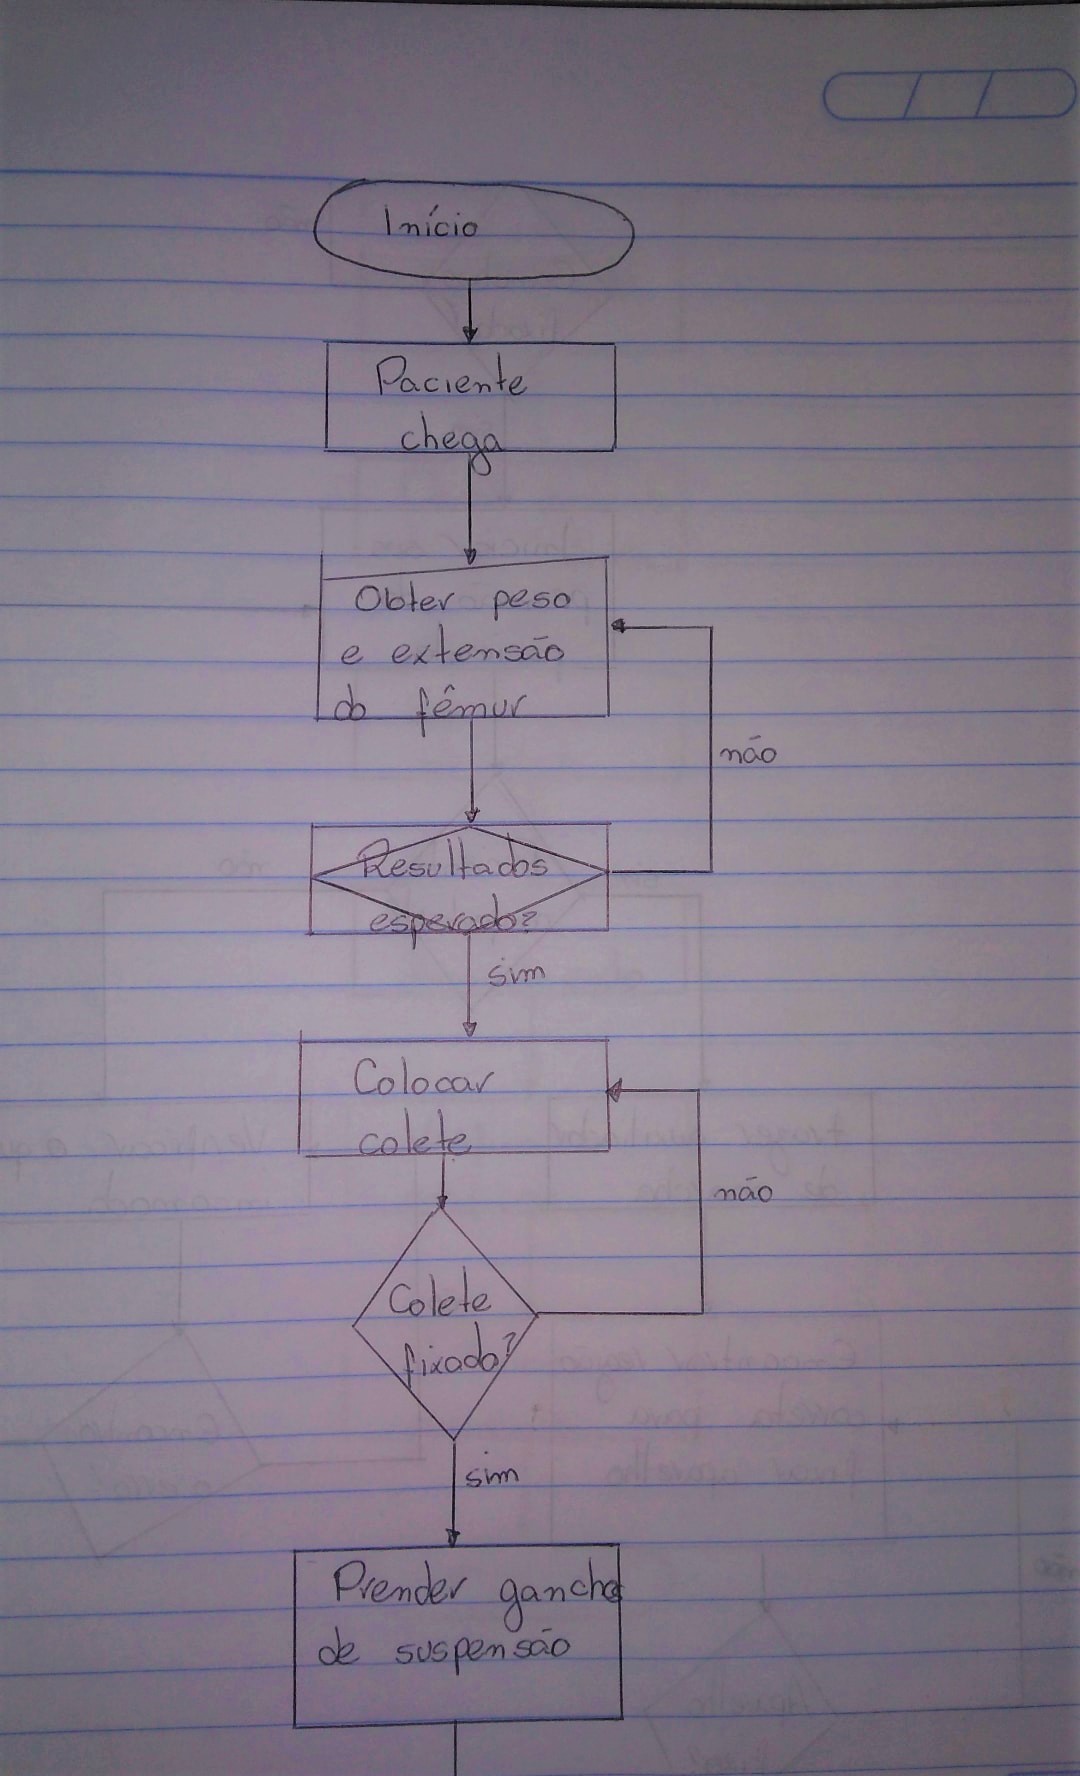 Início
Paciente
chega
Obter peso
e extensão
do fêmur
não
Resultados
esperado?
sim
Colocar
colete
não
Colete
fixado?
sim
Prender gancho
de suspensão